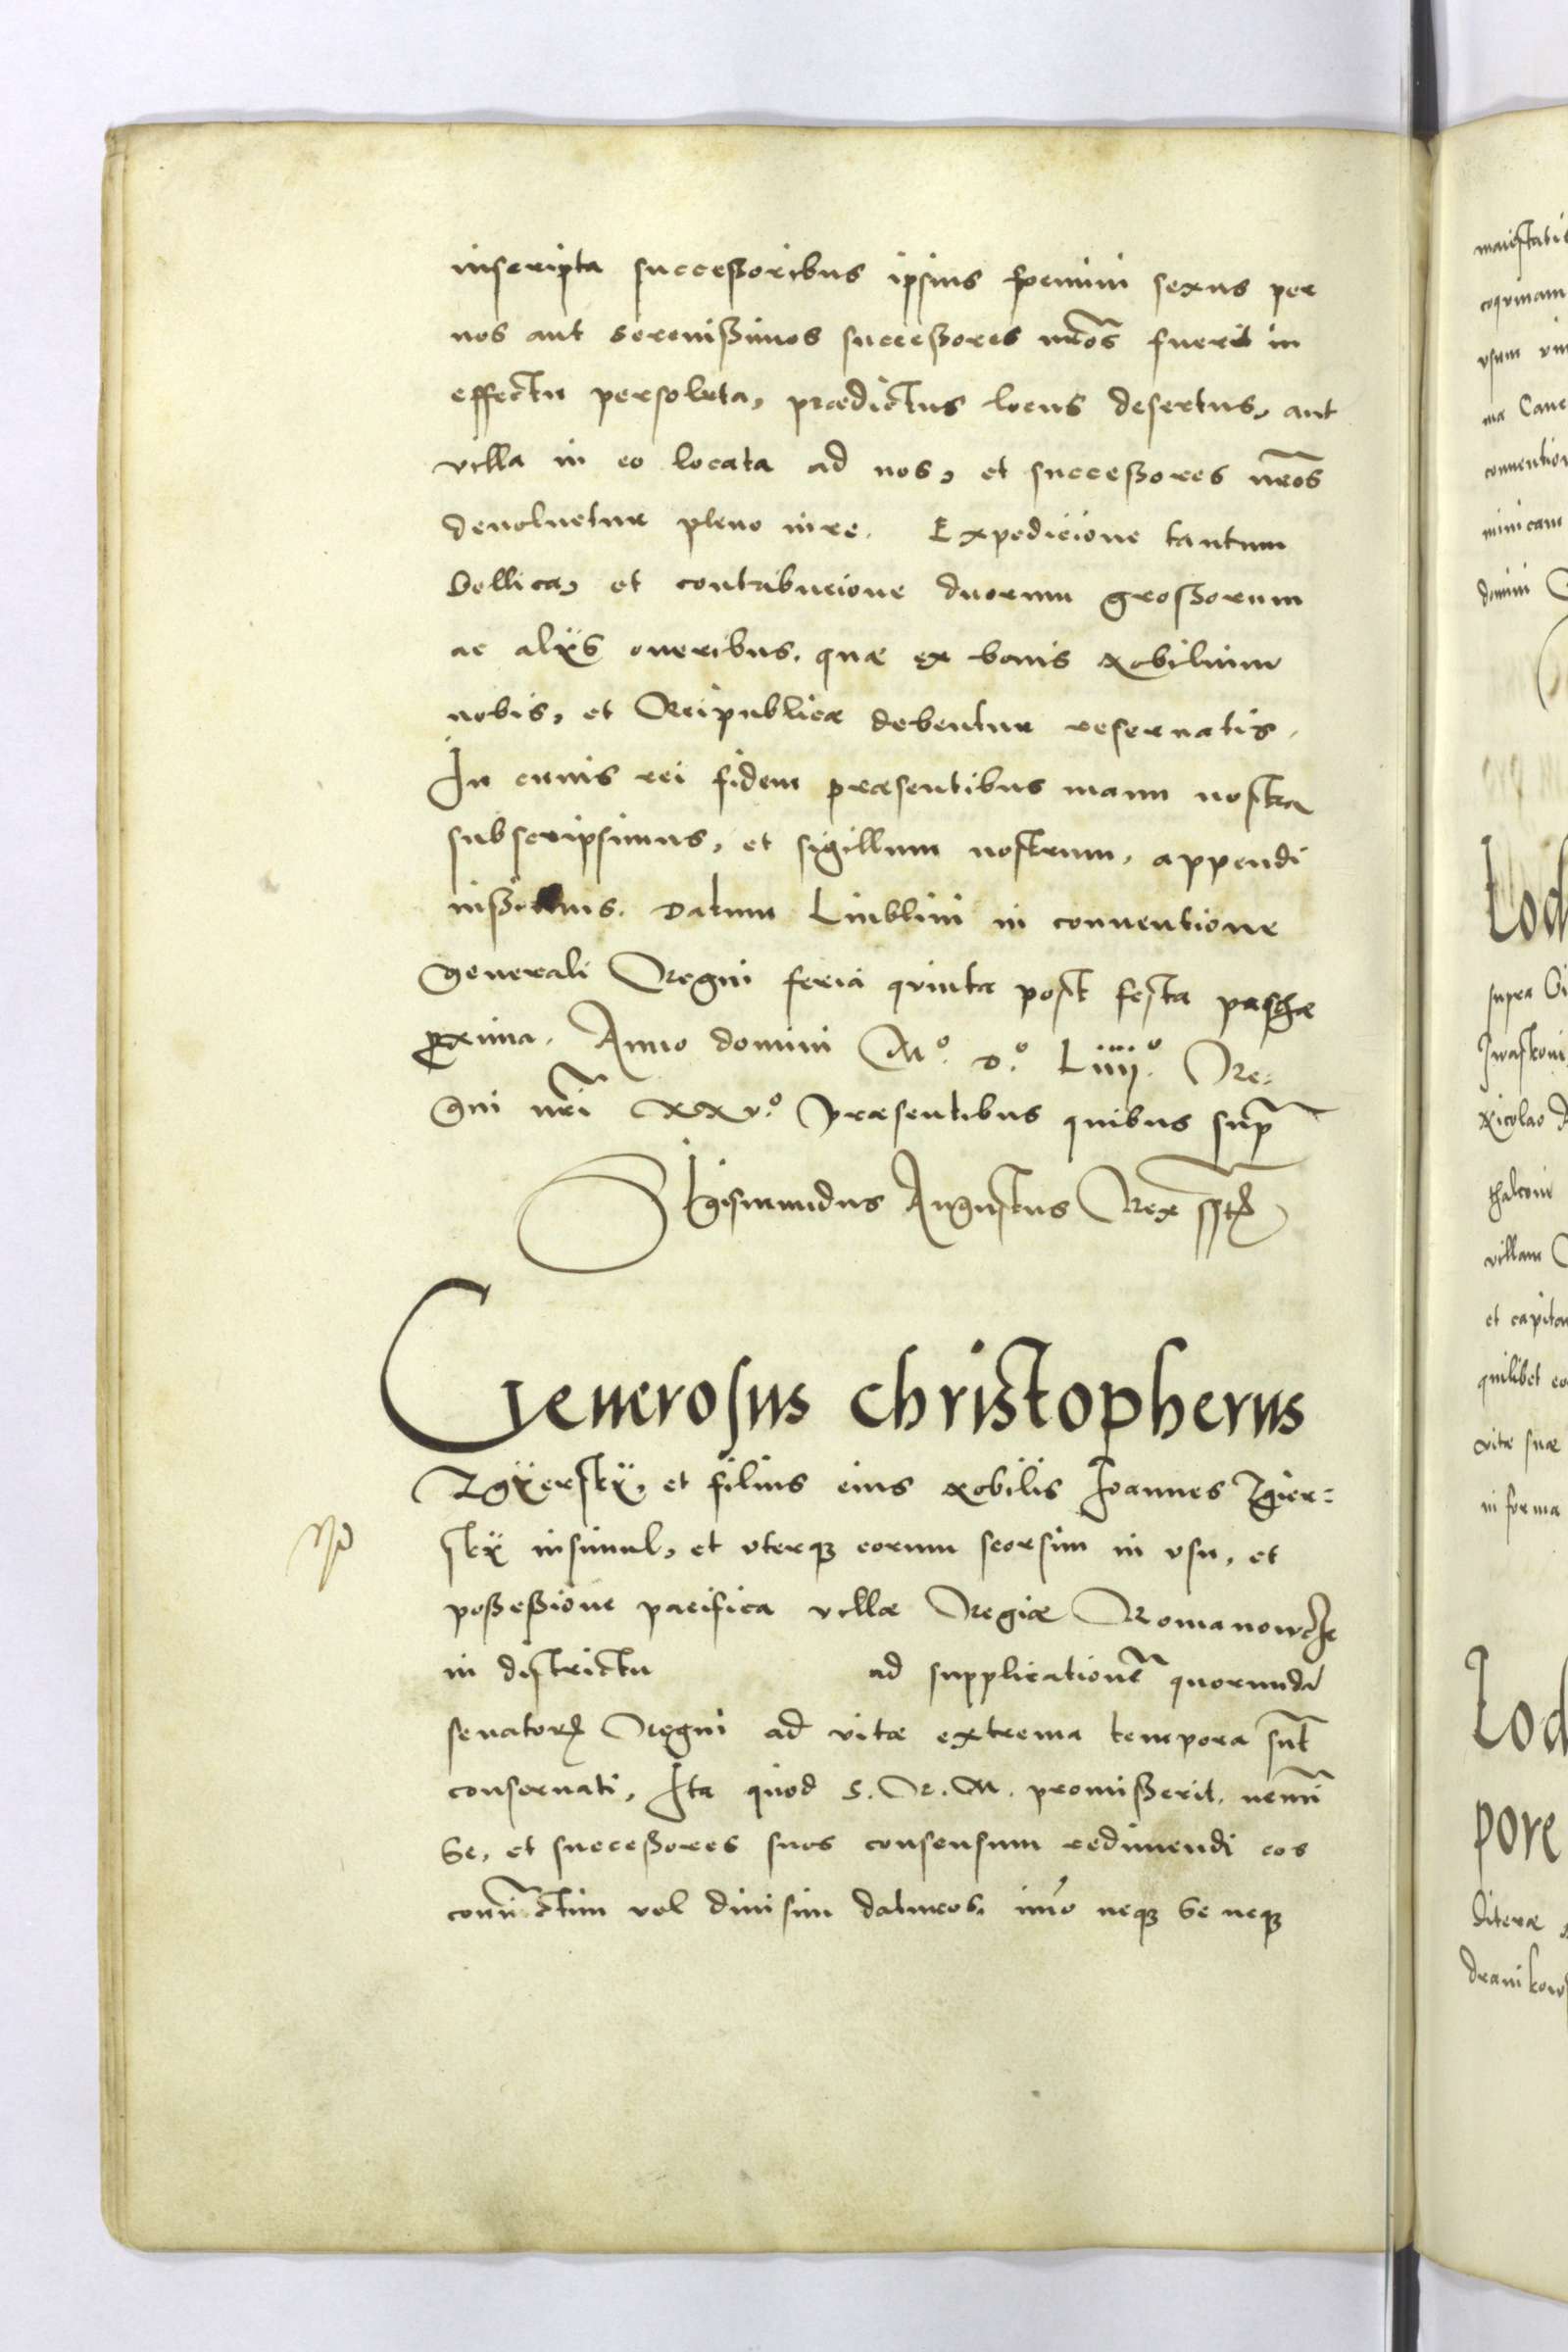 inscripta successoribus ipsius foemini sexus per
nos aut serenissimos successores nr̃os fuerit in
effectu persoluta, praedictus locus desertus, aut
villa in eo locata ad nos, et successores nr̃os
deuoluetur pleno iure. Expedicione tantum
bellica, et contribucione duorum grossorum
ac alÿs oneribus, quae ex bonis Nobilium
nobis, et Reipublicae debentur reseruatis.
In cuius rei fidem praesentibus manu nostra
subscripsimus, et sigillum nostrum, appendi
iussimus. Datum Liublini in conuentione
generali Regni feria quinta post festa paschae
proxima. Anno domini M.º D.º Liiij.º Re=
gni nr̃i XXV.º Praesentibus quibus supr̃
Sigismundus Augustus Rex sst
Generosus christopherus
Zgÿerskÿ, et filius eius Nobilis Joannes Zgier=
skÿ insimul, et vterq3 eorum seorsim in vsu, et
possessione pacifica villae Regiae Romanowcze
in districtu ad supplicationẽ quorundã
senatorꝝ Regni ad vitae extrema tempora sũt
conseruati, Ita quod S. R. M. promisserit, nemini
se, et successores suos consensum redimendi eos
coniũctim vel diuisim daturos, im̃o neq3 se neq3
maiestatis
coquinam
vsum
ma
conuention
minicam
domini
supra
Nicolao
villam
et capitan
quilibet eo
vitae suae
in forma
pore
literae